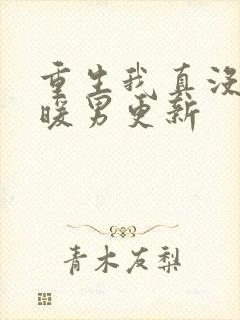 重生我真没
暖男更新
青木友梨